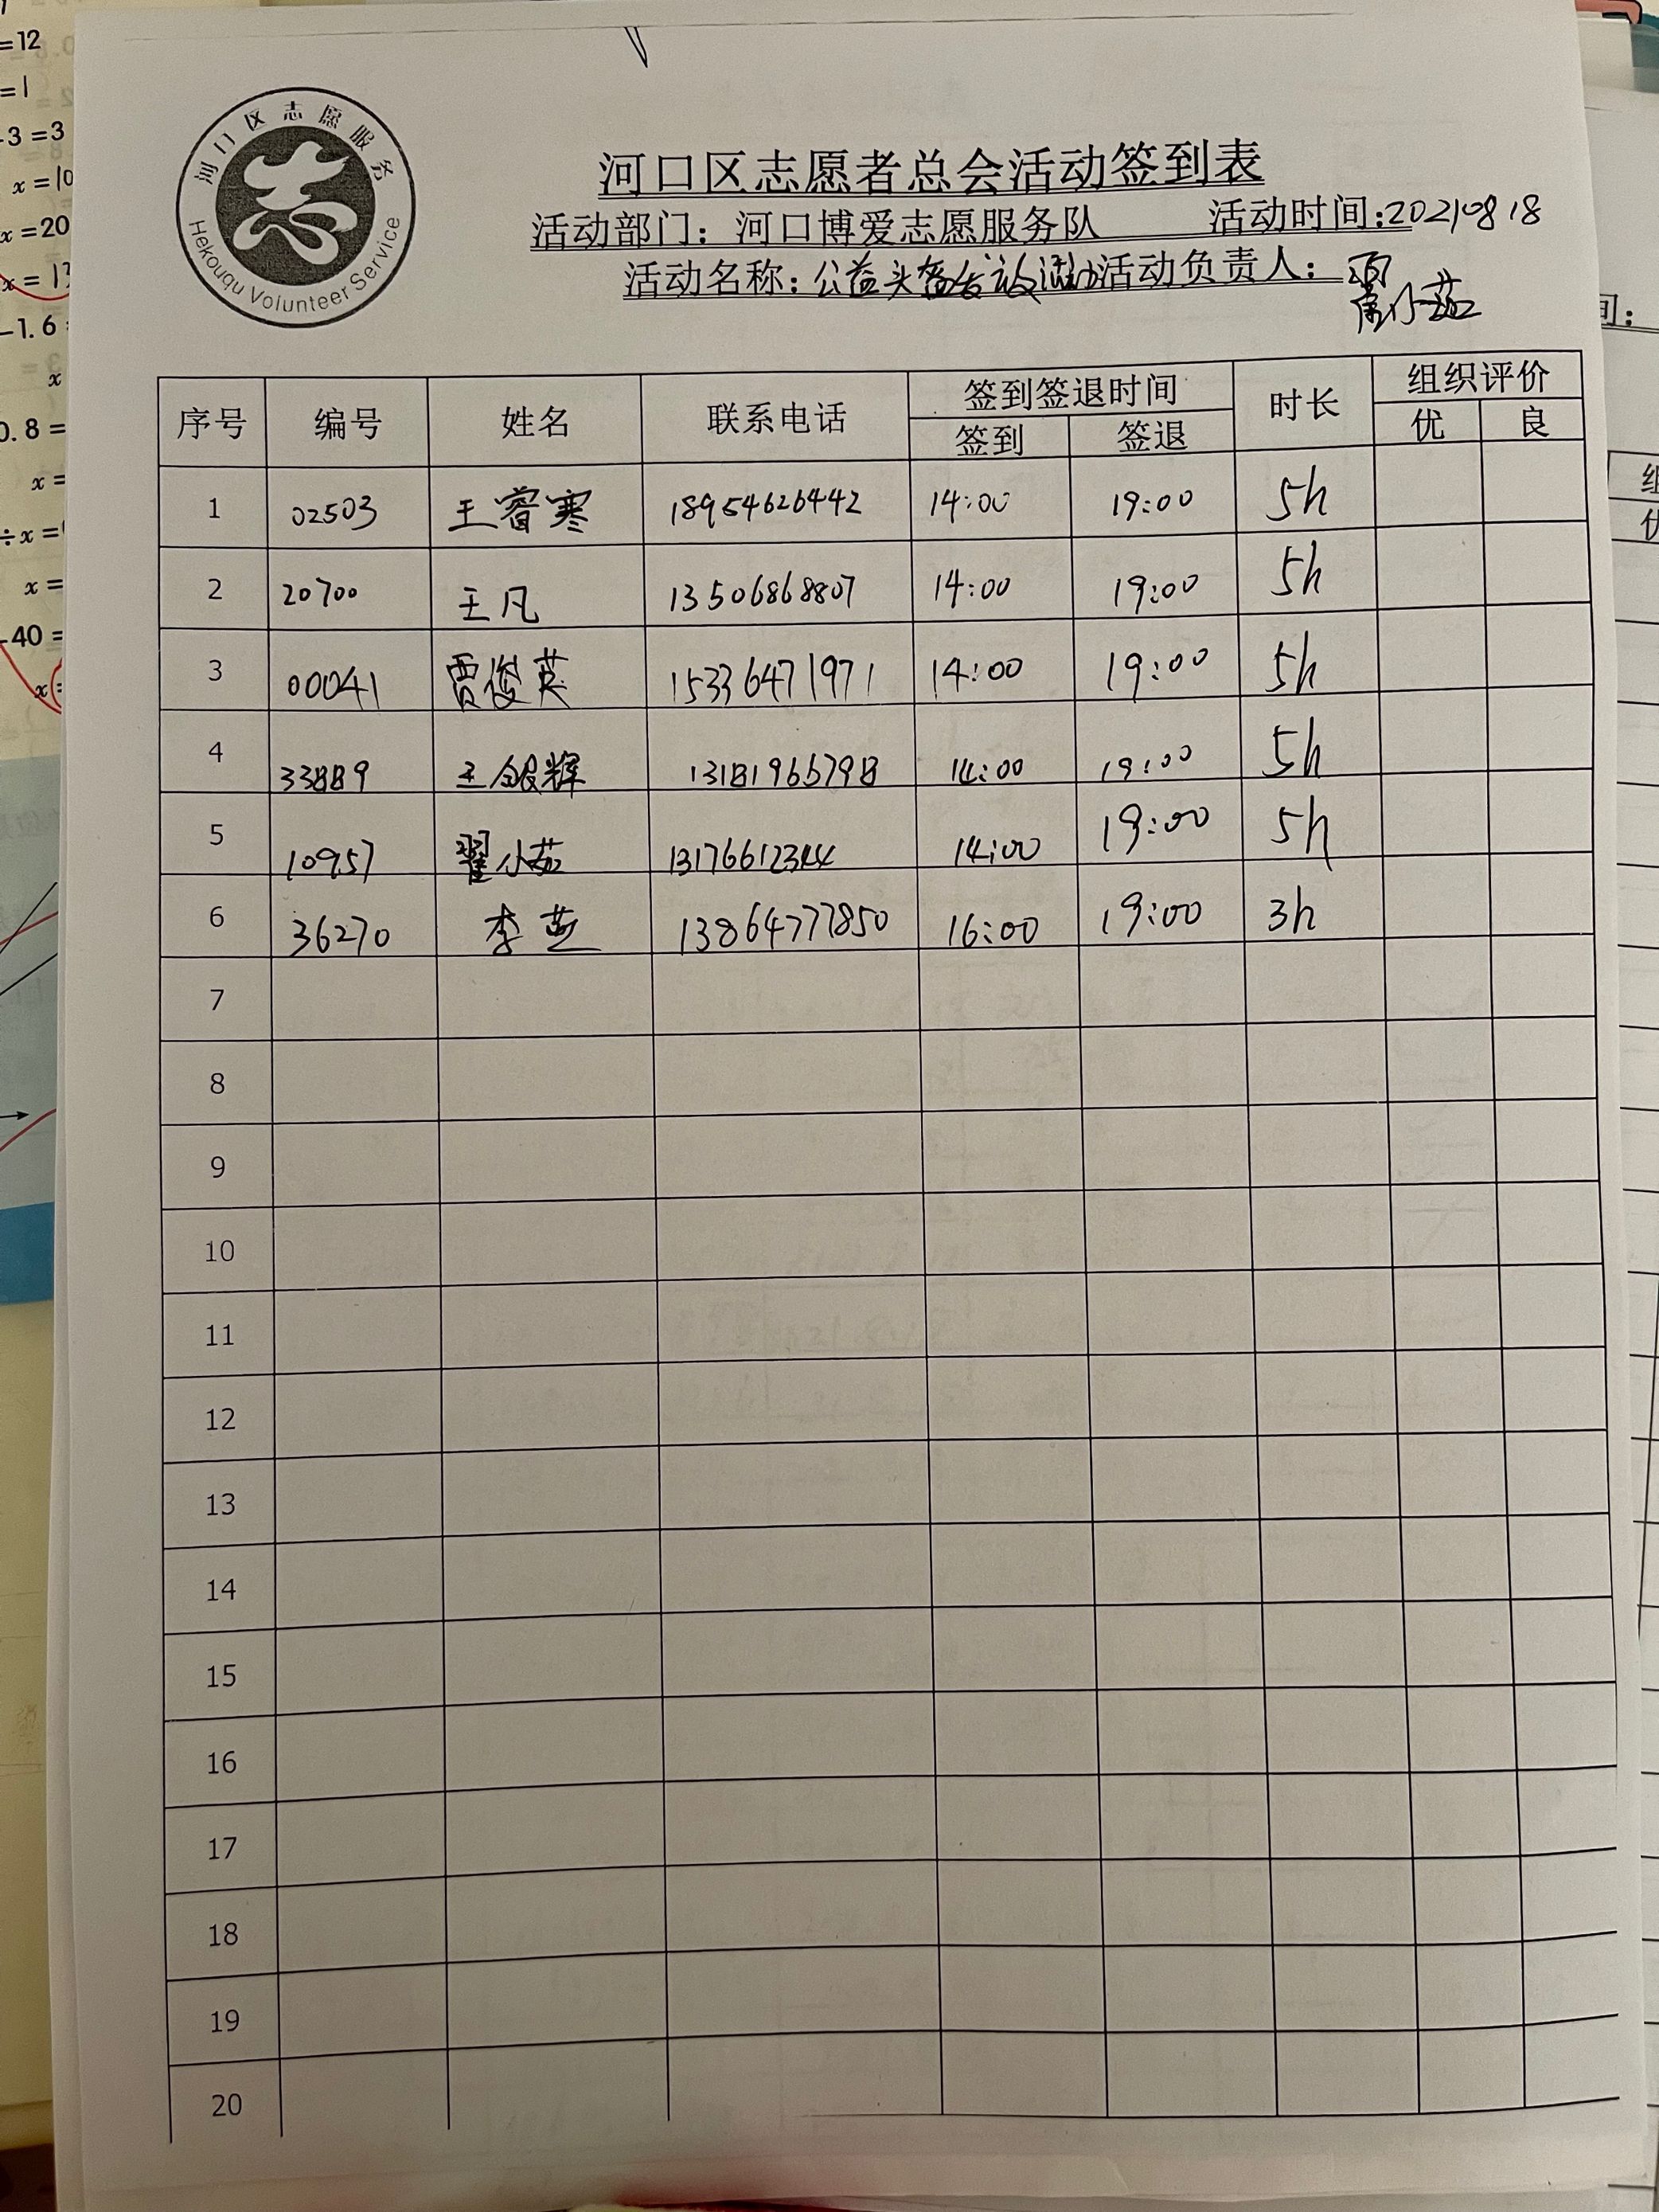 河口区志愿服务
Hekouqu Volunteer Service
河口区志愿者总会活动签到表
活动部门：河口博爱志愿服务队 活动时间:20210818
活动名称：公益头盔发放活动 活动负责人：
翟小茹
序号 编号 姓名 联系电话 签到签退时间 时长 组织评价
签到 签退 优 良
1 02503 王睿寒 18954626442 14:00 19:00 5h
2 20700 王凡 13506868807 14:00 19:00 5h
3 00041 贾俊英 15336471971 14:00 19:00 5h
4 33889 王银辉 13181966798 14:00 19:00 5h
5 10957 翟小茹 13176612344 14:00 19:00 5h
6 36270 李芝 13864777850 16:00 19:00 3h
7
8
9
10
11
12
13
14
15
16
17
18
19
20
=12
=1
-3=3
x=10
x=20
-1.6
x
0.8=
x=
÷x=
x=
-40=
x=
间：